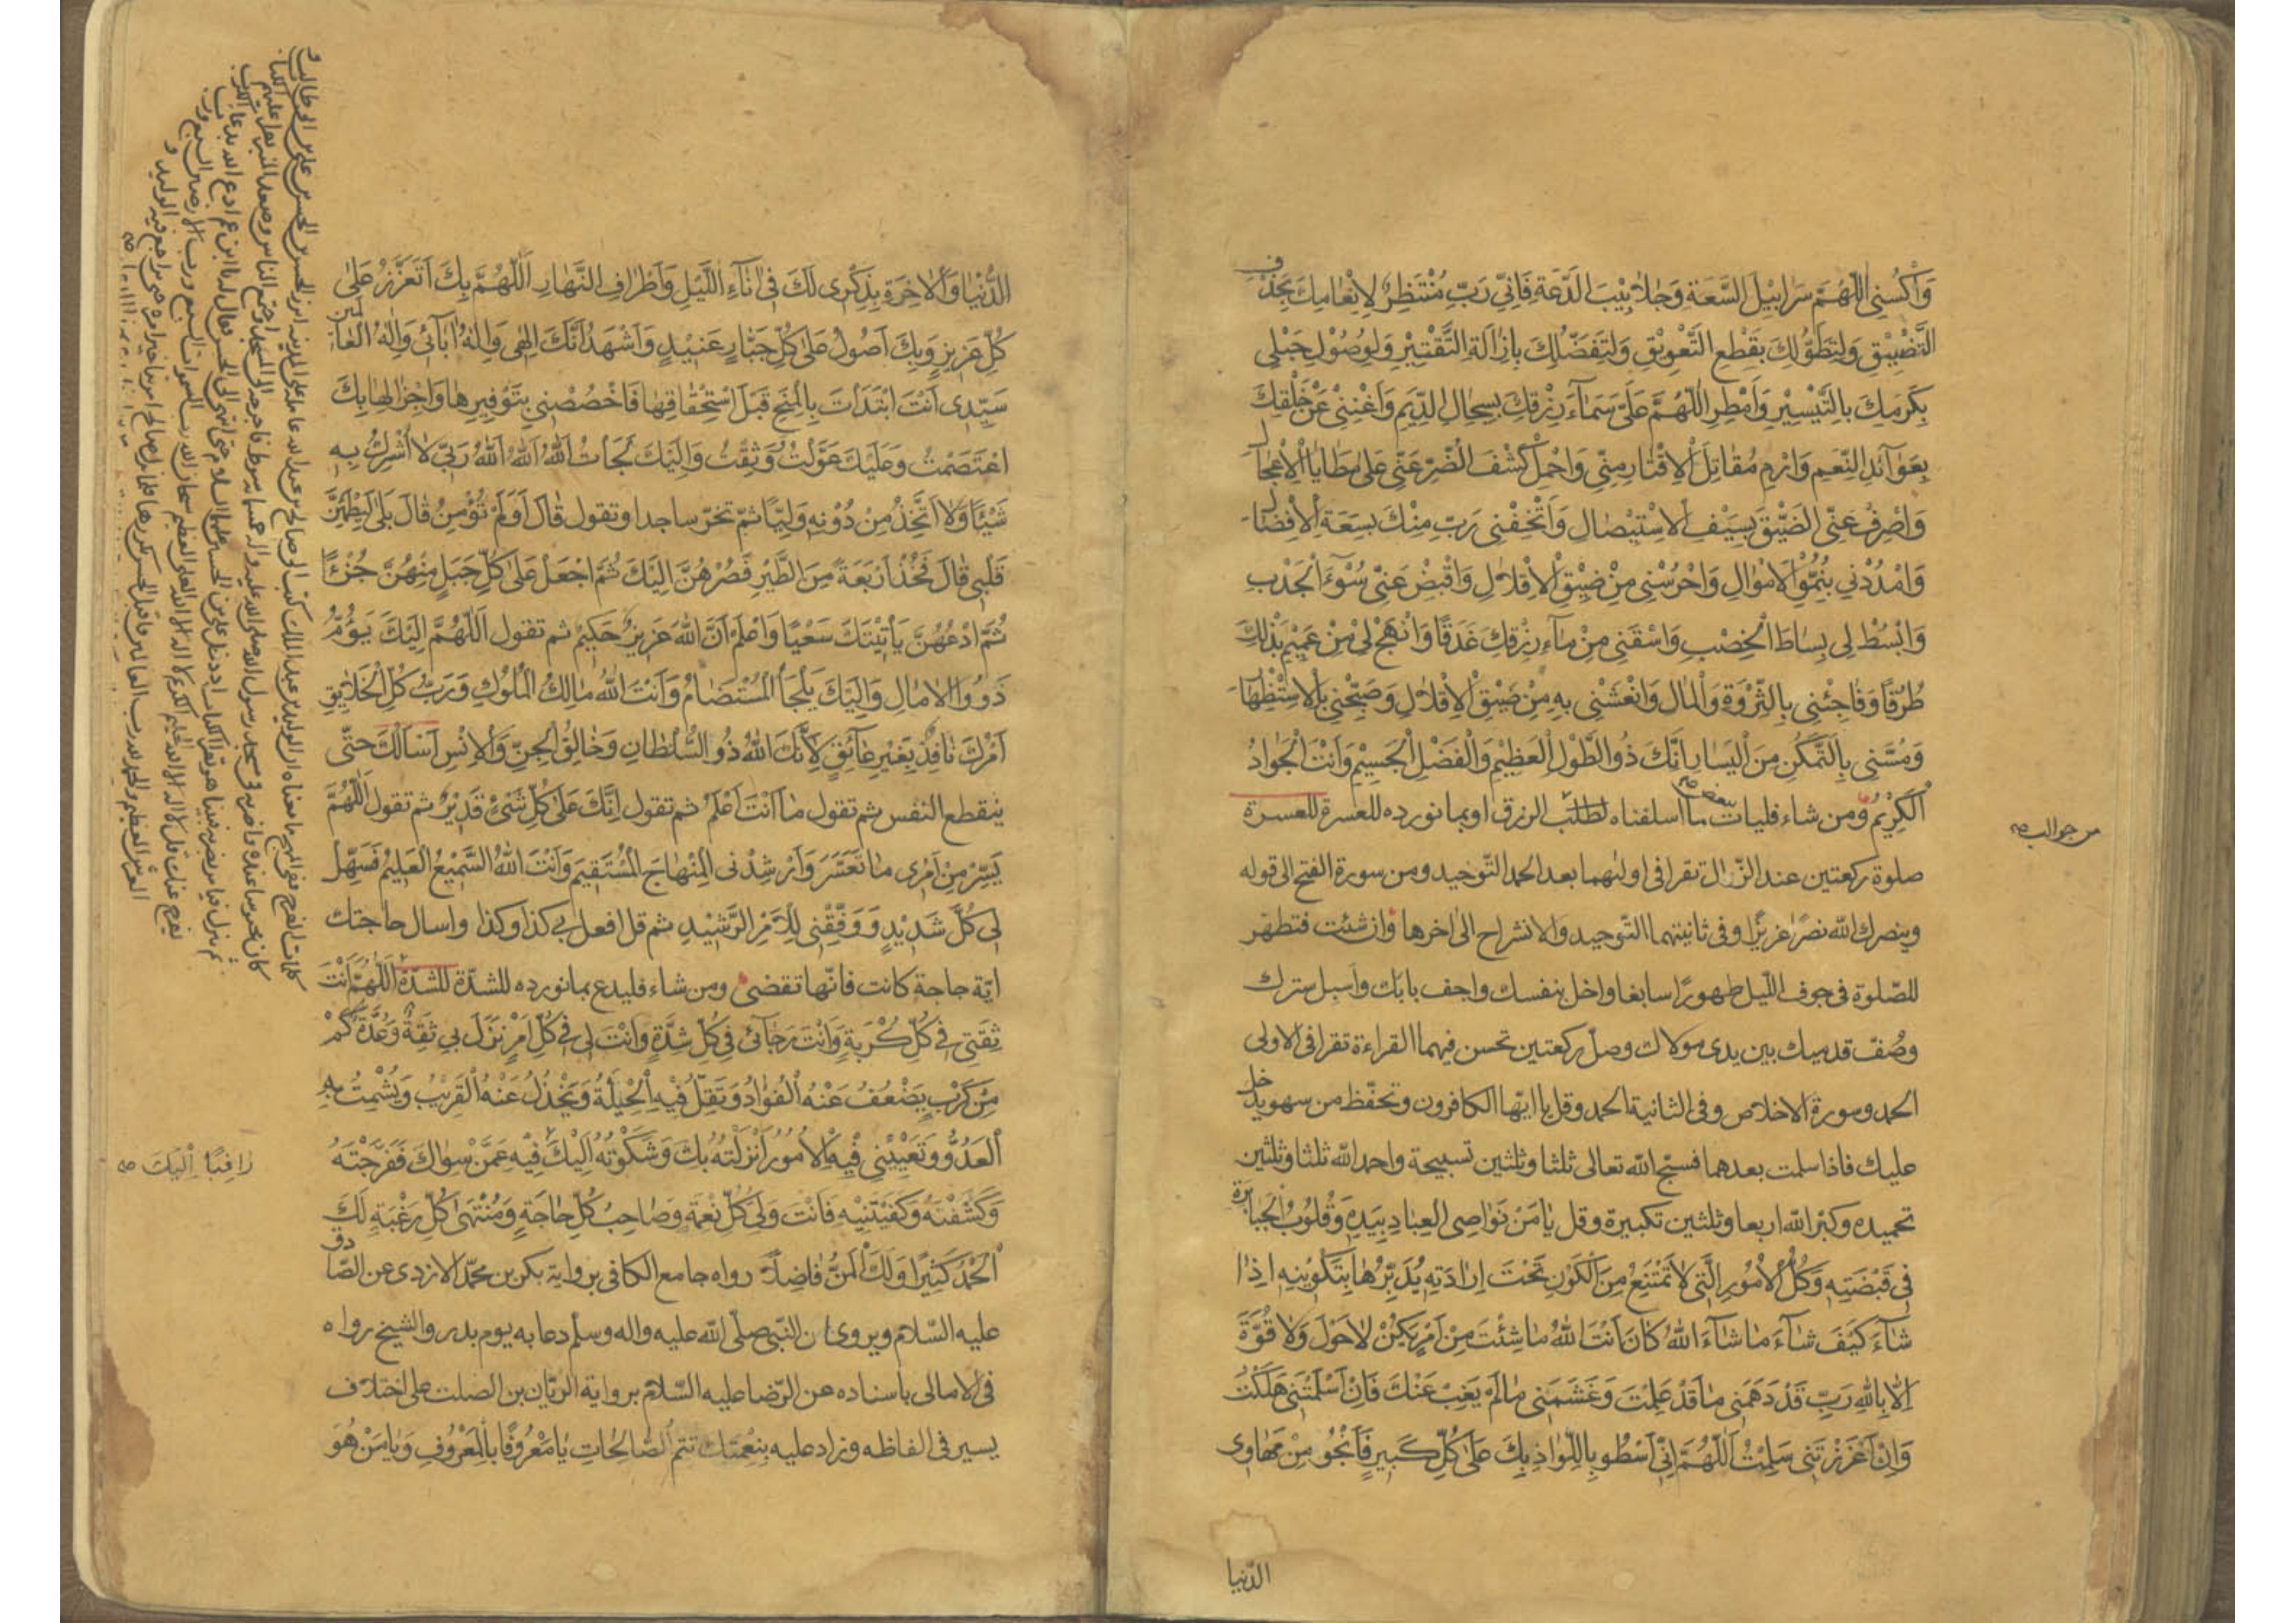 وَاكْسُنِي اللّٰهُمَّ سَرَابِيلَ السَّعَةِ وَجَلَابِيبَ الدَّعَةِ فَاِنِّي رَبِّ مُنْتَظِرٌ لِاِنْعَامِكَ بِحَذْفِ
التَّضْيِيقِ وَلِتَطَوُّلِكَ بِقَطْعِ التَّعْوِيقِ وَلِتَفَضُّلِكَ بِاِزَالَةِ التَّقْتِيرِ وَلِوُصُولِ حَبْلِي
بِكَرَمِكَ بِالتَّيْسِيرِ وَاَمْطِرِ اللّٰهُمَّ عَلَيَّ سَمَاءَ رِزْقِكَ بِسِجَالِ الدِّيَمِ وَاَغْنِنِي عَنْ خَلْقِكَ
بِعَوَائِدِ النِّعَمِ وَارْمِ مَقَاتِلَ الْاِقْتَارِ مِنِّي وَاحْمِلْ كَشْفَ الضُّرِّ عَنِّي عَلىٰ مَطَايَا الْاِعْجَالِ
وَاصْرِفْ عَنِّي الضِّيقَ بِسَيْفِ الْاِسْتِيصَالِ وَاَتْحِفْنِي رَبِّ مِنْكَ بِسَعَةِ الْاِفْضَالِ
وَامْدُدْنِي بِنُمُوِّ الْاَمْوَالِ وَاحْرُسْنِي مِنْ ضِيقِ الْاِقْلَالِ وَاقْبِضْ عَنِّي سُوءَ الْجَدْبِ
وَابْسُطْ لِي بِسَاطَ الْخِصْبِ وَاسْقِنِي مِنْ مَاءِ رِزْقِكَ غَدَقًا وَانْهَجْ لِي مِنْ عَمِيمِ بَذْلِكَ
طُرُقًا وَفَاجِئْنِي بِالثَّرْوَةِ وَالْمَالِ وَانْعَشْنِي بِهِ مِنْ ضِيقِ الْاِقْلَالِ وَصَبِّحْنِي بِالْاِسْتِظْهَارِ
وَمَسِّنِي بِالتَّمَكُّنِ مِنَ الْيَسَارِ اِنَّكَ ذُو الطَّوْلِ الْعَظِيمِ وَالْفَضْلِ الْجَسِيمِ وَاَنْتَ الْجَوَادُ
الْكَرِيمُ ومن شاء فليات ببعض ما اسلفناه لطلب الرزق او بما نورده للعسرة للعسرة
صلوة ركعتين عند الزّوال تقرا فى اولٰيهما بعد الحمد التّوحيد ومن سورة الفتح الى قوله
وينصرك اللّٰه نصرًا عزيزًا وفى ثانيتهما التوحيد والانشراح الى اخرها وان شئت فتطهّر
للصّلوة فى جوف اللّيل طهورًا سابغا واخل بنفسك واجف بابك واسبل سترك
وصُفّ قدميك بين يدى مولاك وصلّ ركعتين تحسن فيهما القراءة تقرا فى الاولى
الحمد وسورة الاخلاص وفى الثانية الحمد وقل يا ايّها الكافرون وتحفّظ من سهو يدخل
عليك فاذا سلمت بعدهما فسبّح اللّٰه تعالى ثلثا وثلثين تسبيحة واحمد اللّٰه ثلثا وثلثين
تحميده وكبّر اللّٰه اربعا وثلثين تكبيرة وقل يَا مَنْ نَوَاصِي الْعِبَادِ بِيَدِهِ وَقُلُوبُ الْجَبَابِرَةِ
فِي قَبْضَتِهِ وَكُلُّ الْاُمُورِ الَّتِي لَا تَمْتَنِعُ مِنَ الْكَوْنِ تَحْتَ اِرَادَتِهِ يُدَبِّرُهَا بِتَكْوِينِهِ اِذَا
شَاءَ كَيْفَ شَاءَ مَا شَاءَ اللّٰهُ كَانَ اَنْتَ اللّٰهُ مَا شِئْتَ مِنْ اَمْرٍ يَكُنْ لَا حَوْلَ وَلَا قُوَّةَ
اِلَّا بِاللّٰهِ رَبِّ قَدْ دَهَمَنِي مَا قَدْ عَلِمْتَ وَغَشِيَنِي مَا لَمْ يَغِبْ عَنْكَ فَاِنْ اَسْلَمْتَنِي هَلَكْتُ
وَاِنْ اَعْزَزْتَنِي سَلِمْتُ اَللّٰهُمَّ اِنِّي اَسْطُو بِاللِّوَاذِ بِكَ عَلىٰ كُلِّ كَبِيرٍ فَاَنْجُو مِنْ مَهَاوِي
الدّنيا
من جوالب صح
الدُّنْيَا وَالْاٰخِرَةِ بِذِكْرِي لَكَ فِي اٰنَاءِ اللَّيْلِ وَاَطْرَافِ النَّهَارِ اَللّٰهُمَّ بِكَ اَتَعَزَّزُ عَلىٰ
كُلِّ عَزِيزٍ وَبِكَ اَصُولُ عَلىٰ كُلِّ جَبَّارٍ عَنِيدٍ وَاَشْهَدُ اَنَّكَ اِلٰهِي وَاِلٰهُ اٰبَائِي وَاِلٰهُ الْعَالَمِينَ
سَيِّدِي اَنْتَ ابْتَدَأْتَ بِالْمِنَحِ قَبْلَ اسْتِحْقَاقِهَا فَاخْصُصْنِي بِتَوْفِيرِهَا وَاِجْزَالِهَا بِكَ
اعْتَصَمْتُ وَعَلَيْكَ عَوَّلْتُ وَثِقْتُ وَاِلَيْكَ لَجَأْتُ اَللّٰهُ اَللّٰهُ اَللّٰهُ رَبِّي لَا اُشْرِكُ بِهِ
شَيْئًا وَلَا اَتَّخِذُ مِنْ دُونِهِ وَلِيًّا ثمّ تخرّ ساجدا وتقول قَالَ اَوَلَمْ تُؤْمِنْ قَالَ بَلىٰ لِيَطْمَئِنَّ
قَلْبِي قَالَ فَخُذْ اَرْبَعَةً مِنَ الطَّيْرِ فَصُرْهُنَّ اِلَيْكَ ثُمَّ اجْعَلْ عَلىٰ كُلِّ جَبَلٍ مِنْهُنَّ جُزْءًا
ثُمَّ ادْعُهُنَّ يَأْتِينَكَ سَعْيًا وَاعْلَمْ اَنَّ اللّٰهَ عَزِيزٌ حَكِيمٌ ثم تقول اَللّٰهُمَّ اِلَيْكَ يَؤُمُّ
ذَوُو الْاٰمَالِ وَاِلَيْكَ يَلْجَأُ الْمُسْتَضَامُ وَاَنْتَ اللّٰهُ مَالِكُ الْمُلُوكِ وَرَبُّ كُلِّ الْخَلَايِقِ
اَمْرُكَ نَافِذٌ بِغَيْرِ عَائِقٍ لِاَنَّكَ اللّٰهُ ذُو السُّلْطَانِ وَخَالِقُ الْجِنِّ وَالْاِنْسِ اَسْاَلُكَ حتّى
ينقطع النفس ثم تقول مَا اَنْتَ اَعْلَمُ ثم تقول اِنَّكَ عَلىٰ كُلِّ شَيْءٍ قَدِيرٌ ثم تقول اَللّٰهُمَّ
يَسِّرْ مِنْ اَمْرِي مَا تَعَسَّرَ وَاَرْشِدْنِي الْمِنْهَاجَ الْمُسْتَقِيمَ وَاَنْتَ اللّٰهُ السَّمِيعُ الْعَلِيمُ فَسَهِّلْ
لِي كُلَّ شَدِيدٍ وَوَفِّقْنِي لِلْاَمْرِ الرَّشِيدِ ثم قل افعل بي كذا وكذا واسال حاجتك
ايّة حاجة كانت فانّها تقضى ومن شاء فليدع بما نورده للشدّة للشدّة اَللّٰهُمَّ اَنْتَ
ثِقَتِي فِي كُلِّ كُرْبَةٍ وَاَنْتَ رَجَائِي فِي كُلِّ شِدَّةٍ وَاَنْتَ لِي فِي كُلِّ اَمْرٍ نَزَلَ بِي ثِقَةٌ وَعُدَّةٌ كَمْ
مِنْ كَرْبٍ يَضْعُفُ عَنْهُ الْفُؤَادُ وَتَقِلُّ فِيهِ الْحِيلَةُ وَيَخْذُلُ عَنْهُ الْقَرِيبُ وَيُشْمِتُ بِهِ
الْعَدُوُّ وَتَعْيِينِي فِيهِ الْاُمُورُ اَنْزَلْتُهُ بِكَ وَشَكَوْتُهُ اِلَيْكَ فِيهِ عَمَّنْ سِوَاكَ فَفَرَّجْتَهُ
وَكَشَفْتَهُ وَكَفَيْتَنِيهِ فَاَنْتَ وَلِيُّ كُلِّ نِعْمَةٍ وَصَاحِبُ كُلِّ حَاجَةٍ وَمُنْتَهىٰ كُلِّ رَغْبَةٍ لَكَ
الْحَمْدُ كَثِيرًا وَلَكَ الْمَنُّ فَاضِلًا رواه جامع الكافى برواية بكر بن محمّد الازدى عن الصّادق
عليه السّلام ويروى ان النّبى صلّى اللّٰه عليه واله وسلم دعا به يوم بدر والشيخ رواه
فى الامالى باسناده عن الرّضا عليه السّلام برواية الريّان بن الصلت على اختلاف
يسير فى الفاظه وزاد عليه بِنِعْمَتِكَ تتم الصَّالِحَاتِ يَا مَعْرُوفًا بِالْمَعْرُوفِ وَيَا مَنْ هُوَ
رَاغِبًا اِلَيْكَ صح